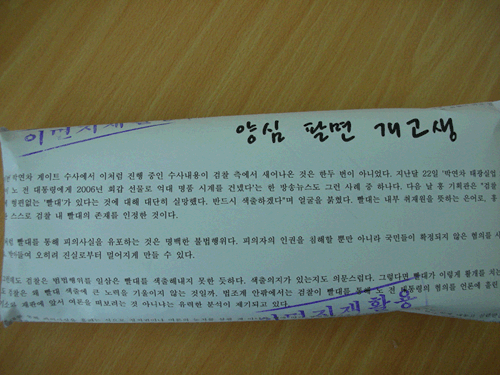 이면지재활용
양심 팔면 개고생
박연차 게이트 수사에서 이처럼 진행 중인 수사내용이 검찰 측에서 새어나온 것은 한두 번이 아니었다. 지난달 22일 '박연차 태광실업
노 전 대통령에게 2006년 회갑 선물로 억대 명품 시계를 건넸다'는 한 방송뉴스도 그런 사례 중 하나다. 다음 날 홍 기획관은 "검찰
형편없는 '빨대'가 있다는 것에 대해 대단히 실망했다. 반드시 색출하겠다"며 얼굴을 붉혔다. 빨대는 내부 취재원을 뜻하는 은어로, 홍
스스로 검찰 내 빨대의 존재를 인정한 것이다.
빨대를 통해 피의사실을 유포하는 것은 명백한 불법행위다. 피의자의 인권을 침해할 뿐만 아니라 국민들이 확정되지 않은 혐의를 사
들여 오히려 진실로부터 멀어지게 만들 수 있다.
검찰은 범법행위를 일삼은 빨대를 색출해내지 못한 듯하다. 색출의지가 있는지도 의문스럽다. 그렇다면 빨대가 이렇게 활개를 치는
검찰은 왜 빨대 색출에 큰 노력을 기울이지 않는 것일까. 법조계 안팎에서는 검찰이 빨대를 통해 노 전 대통령의 혐의를 언론에 흘린
재판에 앞서 여론을 떠보려는 것 아니냐는 유력한 분석이 제기되고 있다.
이면지재활용